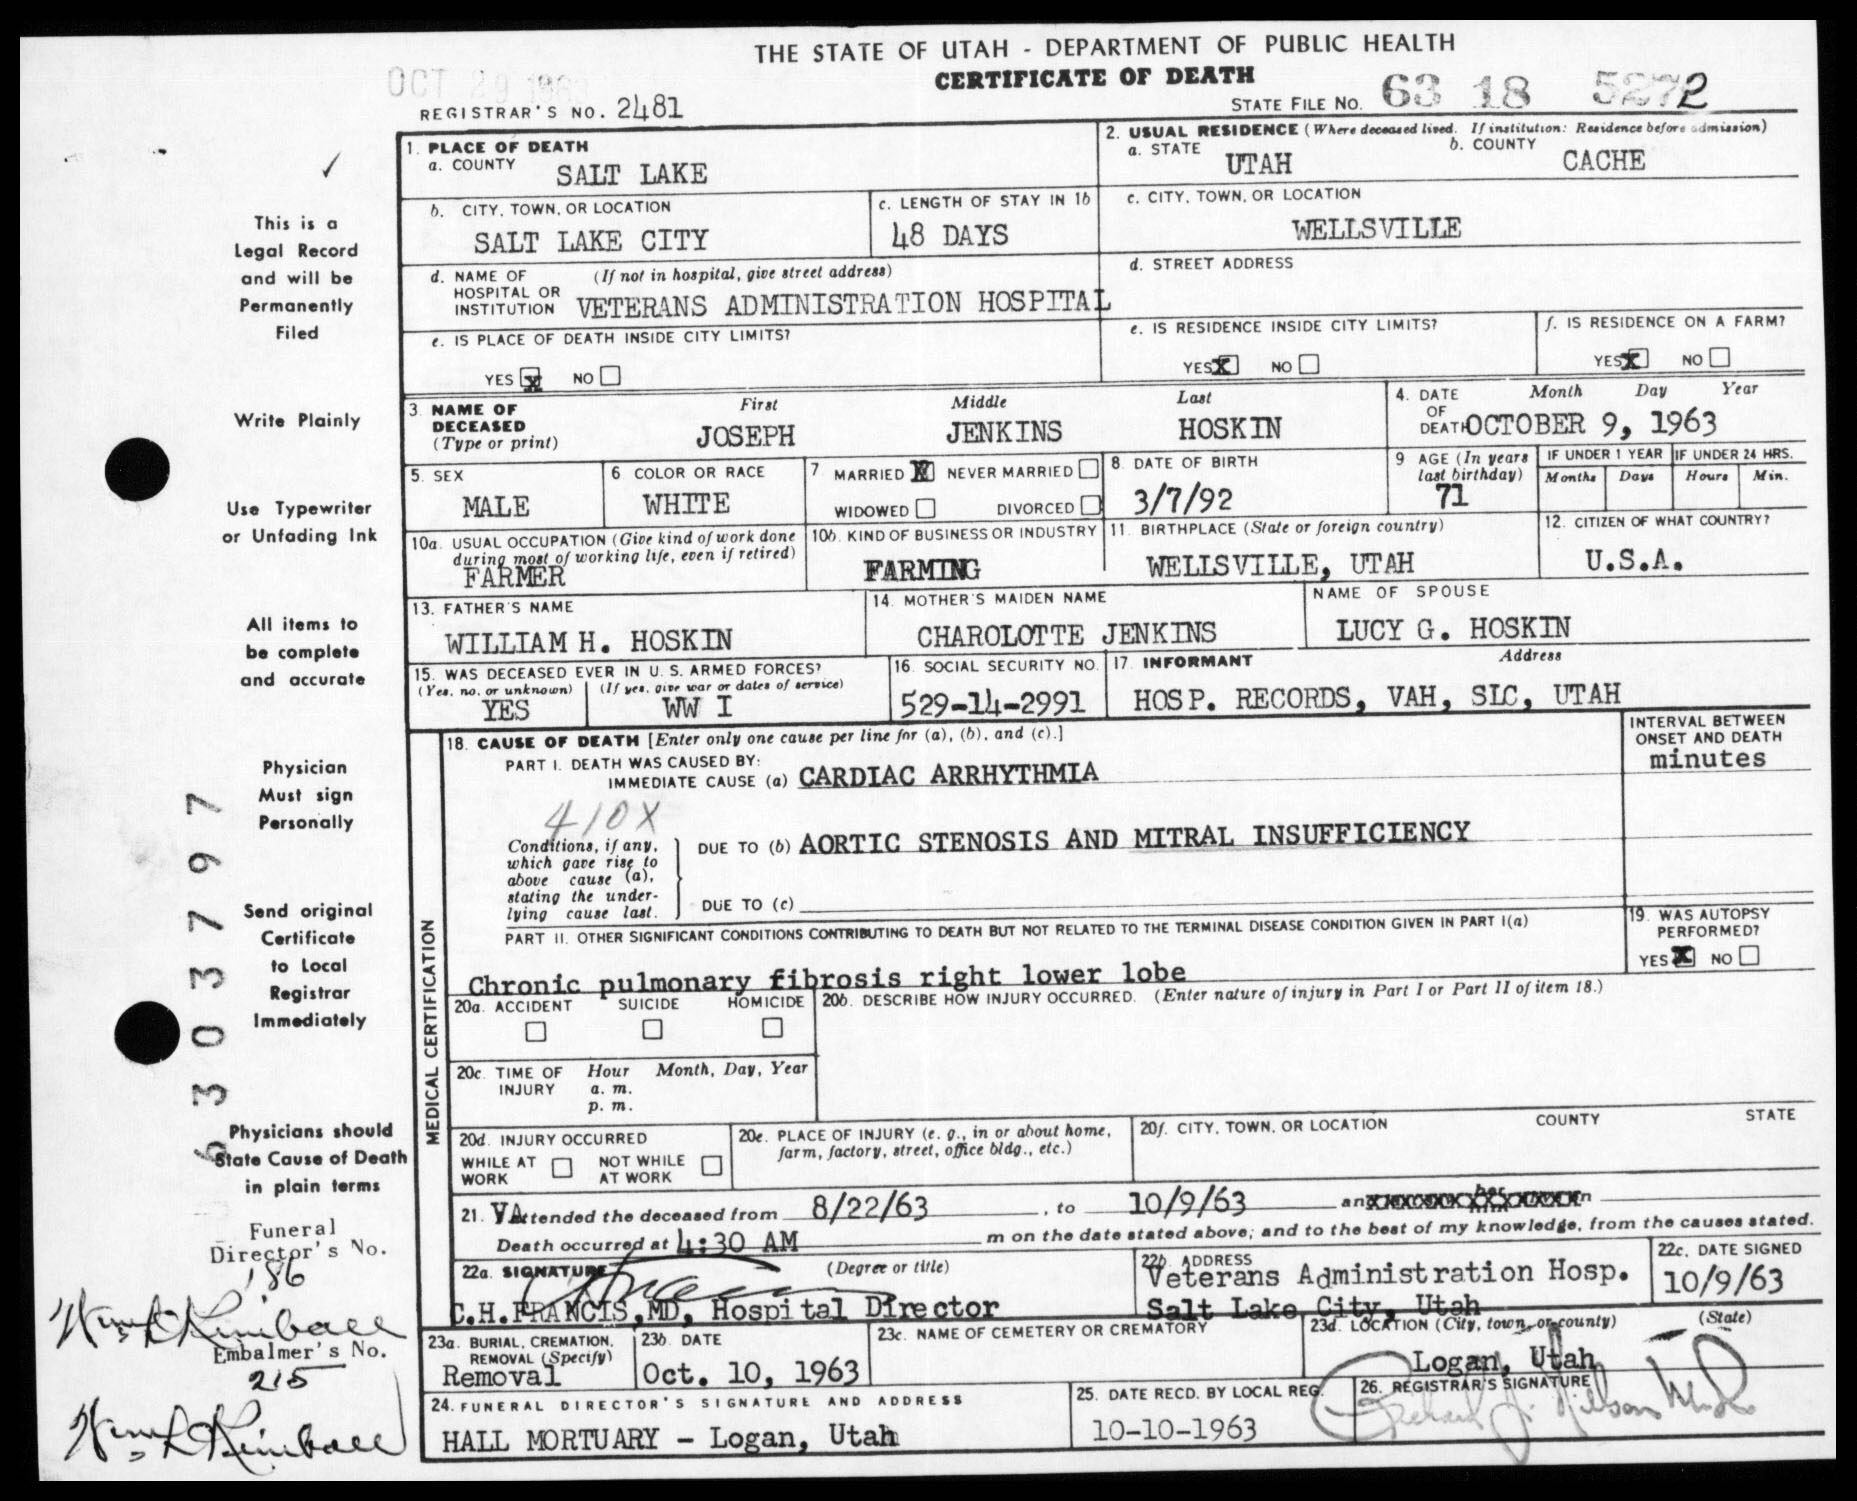 THE STATE OF UTAH - DEPARTMENT OF PUBLIC HEALTH
CERTIFICATE OF DEATH
OCT 29 1963
REGISTRAR'S NO. 2481
STATE FILE NO. 63 18 5272
1. PLACE OF DEATH
a. COUNTY SALT LAKE
2. USUAL RESIDENCE (Where deceased lived. If institution: Residence before admission)
a. STATE UTAH b. COUNTY CACHE
b. CITY, TOWN, OR LOCATION SALT LAKE CITY
c. LENGTH OF STAY IN 1b 48 DAYS
c. CITY, TOWN, OR LOCATION WELLSVILLE
d. NAME OF HOSPITAL OR INSTITUTION (If not in hospital, give street address) VETERANS ADMINISTRATION HOSPITAL
d. STREET ADDRESS
e. IS PLACE OF DEATH INSIDE CITY LIMITS?
YES X NO
e. IS RESIDENCE INSIDE CITY LIMITS?
YES X NO
f. IS RESIDENCE ON A FARM?
YES X NO
3. NAME OF DECEASED (Type or print)
First Middle Last
JOSEPH JENKINS HOSKIN
4. DATE OF DEATH Month Day Year
OCTOBER 9, 1963
5. SEX MALE
6 COLOR OR RACE WHITE
7. MARRIED X NEVER MARRIED
WIDOWED DIVORCED
8. DATE OF BIRTH 3/7/92
9 AGE (In years last birthday) 71
IF UNDER 1 YEAR Months Days
IF UNDER 24 HRS. Hours Min.
10a. USUAL OCCUPATION (Give kind of work done during most of working life, even if retired) FARMER
10b. KIND OF BUSINESS OR INDUSTRY FARMING
11. BIRTHPLACE (State or foreign country) WELLSVILLE, UTAH
12. CITIZEN OF WHAT COUNTRY? U.S.A.
13. FATHER'S NAME WILLIAM H. HOSKIN
14. MOTHER'S MAIDEN NAME CHAROLOTTE JENKINS
NAME OF SPOUSE LUCY G. HOSKIN
15. WAS DECEASED EVER IN U. S. ARMED FORCES?
(Yes, no, or unknown) YES (If yes, give war or dates of service) WW I
16. SOCIAL SECURITY NO. 529-14-2991
17. INFORMANT Address
HOSP. RECORDS, VAH, SLC, UTAH
MEDICAL CERTIFICATION
18. CAUSE OF DEATH [Enter only one cause per line for (a), (b), and (c).]
INTERVAL BETWEEN ONSET AND DEATH
PART I. DEATH WAS CAUSED BY:
IMMEDIATE CAUSE (a) CARDIAC ARRHYTHMIA minutes
410X
Conditions, if any, which gave rise to above cause (a), stating the underlying cause last.
DUE TO (b) AORTIC STENOSIS AND MITRAL INSUFFICIENCY
DUE TO (c)
PART II. OTHER SIGNIFICANT CONDITIONS CONTRIBUTING TO DEATH BUT NOT RELATED TO THE TERMINAL DISEASE CONDITION GIVEN IN PART I(a)
Chronic pulmonary fibrosis right lower lobe
19. WAS AUTOPSY PERFORMED?
YES X NO
20a. ACCIDENT SUICIDE HOMICIDE
20b. DESCRIBE HOW INJURY OCCURRED. (Enter nature of injury in Part I or Part II of item 18.)
20c. TIME OF INJURY Hour Month, Day, Year
a. m.
p. m.
20d. INJURY OCCURRED
WHILE AT WORK NOT WHILE AT WORK
20e. PLACE OF INJURY (e. g., in or about home, farm, factory, street, office bldg., etc.)
20f. CITY, TOWN, OR LOCATION COUNTY STATE
21. VA attended the deceased from 8/22/63, to 10/9/63
Death occurred at 4:30 AM m on the date stated above; and to the best of my knowledge, from the causes stated.
22a. SIGNATURE (Degree or title)
C.H.FRANCIS,MD, Hospital Director
22b. ADDRESS
Veterans Administration Hosp.
Salt Lake City, Utah
22c. DATE SIGNED 10/9/63
23a. BURIAL, CREMATION, REMOVAL (Specify) Removal
23b. DATE Oct. 10, 1963
23c. NAME OF CEMETERY OR CREMATORY
23d. LOCATION (City, town, or county) (State)
Logan, Utah
24. FUNERAL DIRECTOR'S SIGNATURE AND ADDRESS
HALL MORTUARY - Logan, Utah
25. DATE RECD. BY LOCAL REG. 10-10-1963
26. REGISTRAR'S SIGNATURE
This is a
Legal Record
and will be
Permanently
Filed
Write Plainly
Use Typewriter
or Unfading Ink
All items to
be complete
and accurate
Physician
Must sign
Personally
Send original
Certificate
to Local
Registrar
Immediately
Physicians should
State Cause of Death
in plain terms
6303797
Funeral
Director's No.
186
Embalmer's No.
215